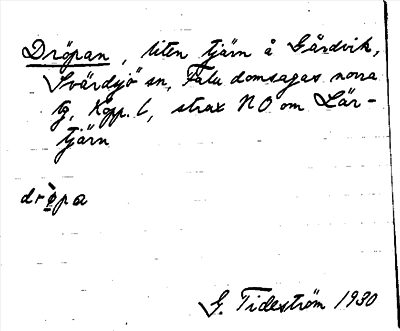 Dröpan, liten tjärn å Gårdvik,
Svärdsjö sn, Falu domsagas norra
tg, Kopp. l, strax NO om Lär-
tjärn
dr̀öpa
G. Tideström 1930